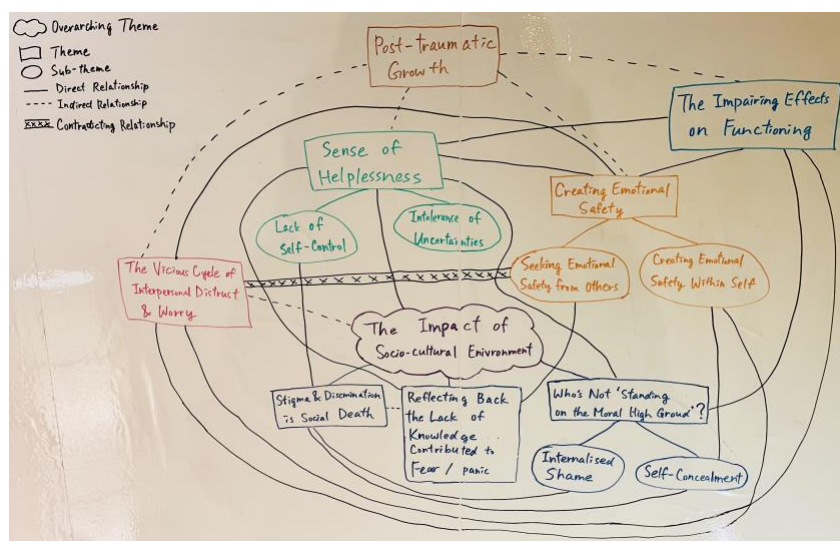 Overarching Theme
Theme
Sub-theme
Direct Relationship
Indirect Relationship
xxxx Contradicting Relationship
Post-traumatic
Growth
The Impairing Effects
on Functioning
Sense of
Helplessness
Creating Emotional
Safety
Lack of
Self-Control
Intolerance of
Uncertainties
Seeking Emotional
Safety from Others
Creating Emotional
Safety Within Self
The Vicious Cycle of
Interpersonal Distrust
& Worry
The Impact of
Socio-cultural Enivronment
Stigma & Discimination
is Social Death
Reflecting Back
the Lack of
Knowledge
Contributed to
Fear / panic
Who's Not 'Standing
on the Moral High Groud'?
Internalised
Shame
Self-Concealment